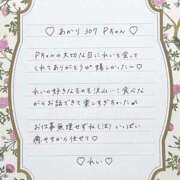 ♡ あかり 307 Pさん ♡
Pさんの大切な日にれいを会って
くれてありがとうが嬉しかった〜
♡
れいの好きなものを沢山、食べな
がらお話できて楽しすぎちゃった
お仕事無理せずね いっぱい
癒やすから任せて♡
♡ れい ♡